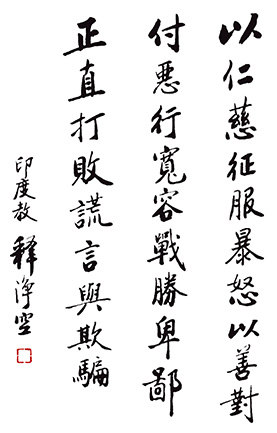 以仁慈征服暴怒以善對
付惡行寬容戰勝卑鄙
正直打敗謊言與欺騙
印度教 釋淨空